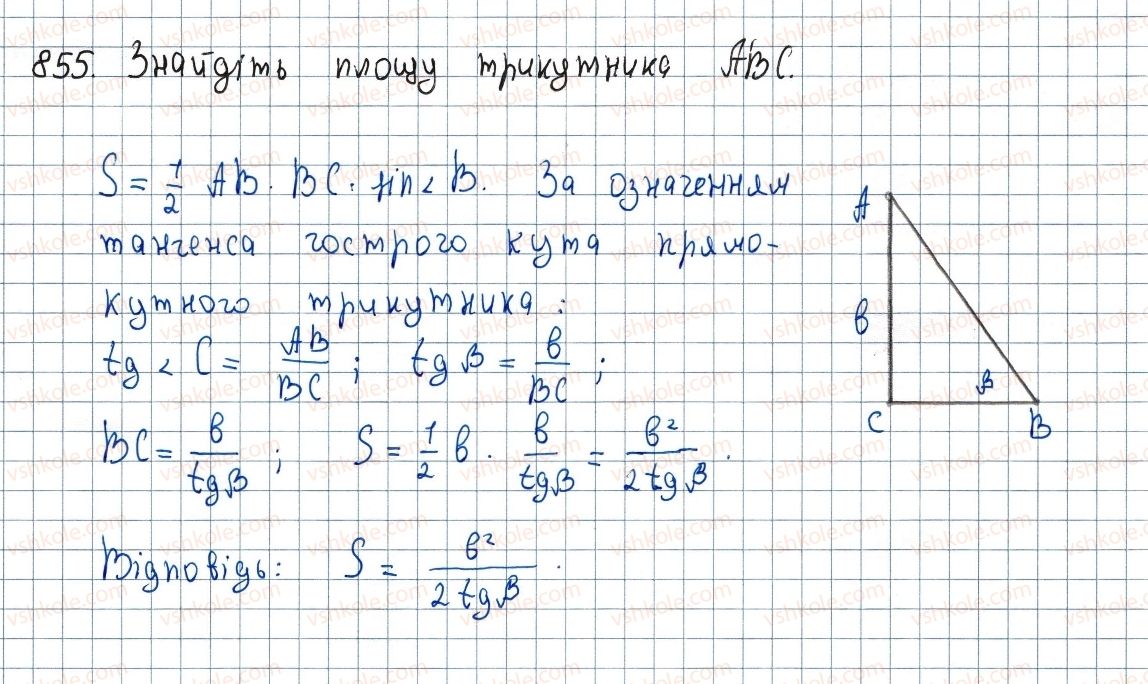 855. Знайдіть площу трикутника ABC.
S = 1/2 AB · BC · sin < B. За означенням
тангенса гострого кута прямо-
кутного трикутника:
tg < C = AB/BC ; tg β = b/BC ;
BC = b/tgβ ; S = 1/2 b · b/tgβ = b²/2tgβ .
Відповідь: S = b²/2tgβ .
A
b
β
C
B
vshkole.com